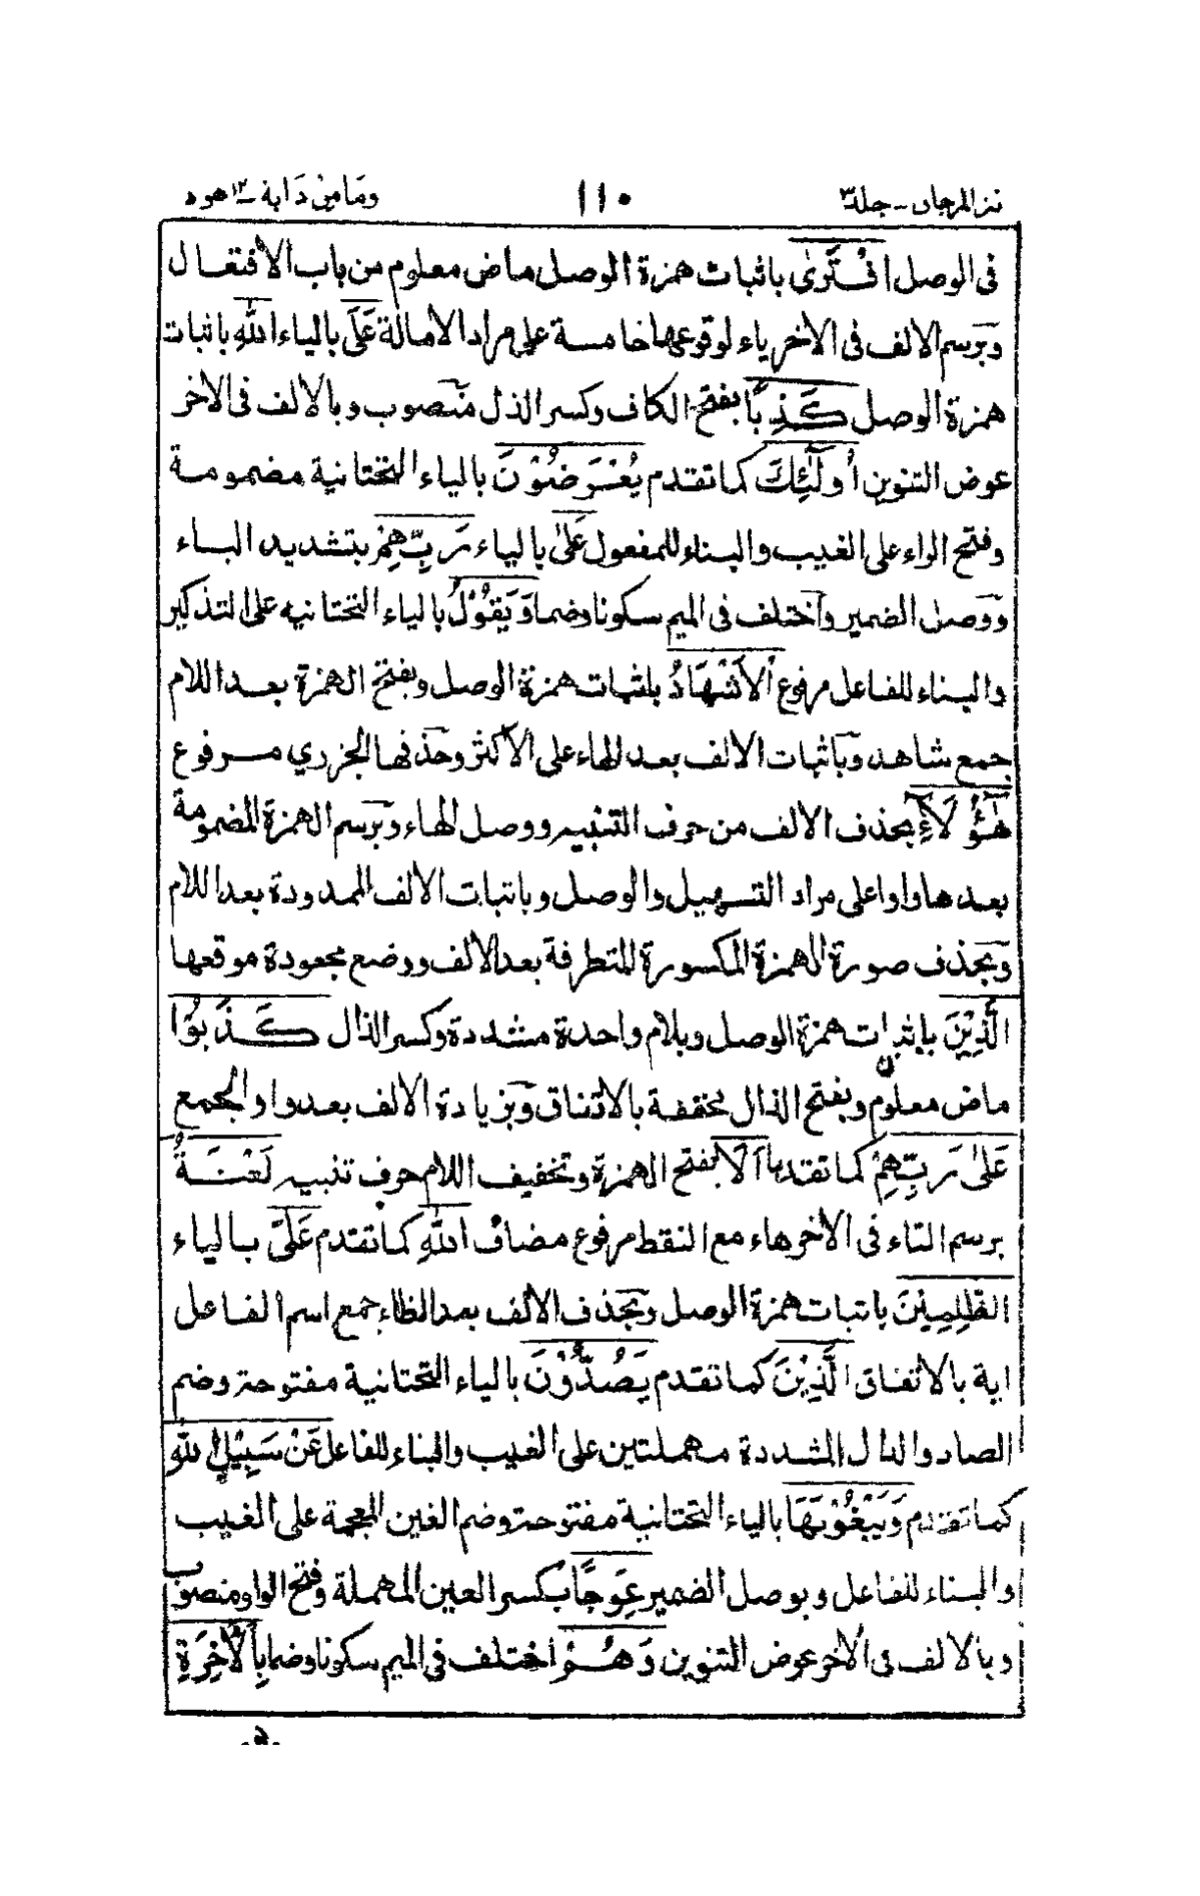 نثر المرجان - جلد ٣ ١١٠ ومامن دَابة ١٢ هود
فى الوصل افْتَرٰى باثبات همزة الوصل ماض معلوم من باب الافتعال
وبَرسم الالف فى الاخر ياء لوقوعها خامسة على مراد الامالة عَلَى بالياء اللّٰهِ باثبات
همزة الوصل كَذِبًا بفتح الكاف وكسر الذل منصوب وبالالف فى الاخر
عوض التنوين اُولٰٓئِكَ كما تقدم يُعْرَضُوْنَ بالياء التحتانية مضمومة
وفتح الراء على الغيب والبناء للمفعول عَلٰى بالياء رَبِّهِمْ بتشديد الباء
ووصل الضمير واختلف فى الميم سكونا وضما وَيَقُوْلُ بالياء التحتانيه على التذكير
والبناء للفاعل مرفوع الْاَشْهَادُ باثبات همزة الوصل وبفتح الهمزة بعد اللام
جمع شاهد وباثبات الالف بعد الهاء على الاكثر وحذفها الجزري مرفوع
هٰٓؤُلَآءِ بحذف الالف من حرف التنبيه ووصل الهاء وبرسم الهمزة المضمومة
بعدها واوا على مراد التسهيل والوصل وباثبات الالف الممدودة بعد اللام
وبحذف صورة الهمزة المكسورة المتطرفة بعد الالف ووضع مجعودة موقعها
الَّذِيْنَ باثبات همزة الوصل وبلام واحدة مشددة وكسر الذال كَذَبُوْا
ماض معلوم وبفتح الذال مخففة بالاتفاق وبزيادة الالف بعد واو الجمع
عَلٰى رَبِّهِمْ كما تقدما اَلَا بفتح الهمزة وتخفيف اللام حرف تنبيه لَعْنَةُ
برسم التاء فى الاخر هاء مع النقط مرفوع مضاف اللّٰهِ كما تقدم عَلَى بالياء
الظّٰلِمِيْنَ باثبات همزة الوصل وبحذف الالف بعد الظاء جمع اسم الفاعل
اية بالاتفاق الَّذِيْنَ كما تقدم يَصُدُّوْنَ بالياء التحتانية مفتوحة وضم
الصاد والدال المشددة مهملتين على الغيب والبناء للفاعل عَنْ سَبِيْلِ اللّٰهِ
كما تقدم وَيَبْغُوْنَهَا بالياء التحتانية مفتوحة وضم الغين المعجمة على الغيب
والبناء للفاعل وبوصل الضمير عِوَجًا بكسر العين المهملة وفتح الواو منصوب
وبالالف فى الاخر عوض التنوين وَهُمْ اختلف فى الميم سكونا وضما بِالْاٰخِرَةِ